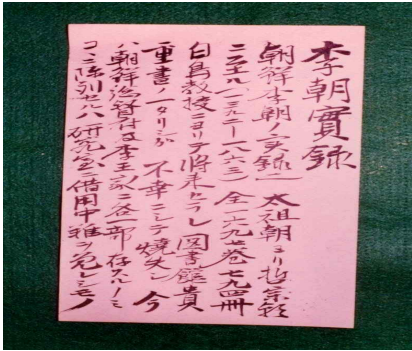 李朝實録
朝鮮李朝ノ実録ニ 太祖朝ヨリ哲宗朝
ニ至ル(一三九二—一八六三) 全 巻七九四冊
白鳥教授ニヨリテ将来セラレ 図書館貴
重書ノ一タリシガ 不幸ニシテ焼失シ 今
ハ朝鮮総督府及李王家ニ各一部存スルノミ
コヽニ陳列セルハ研究室ニ借用中難ヲ免レシモノ